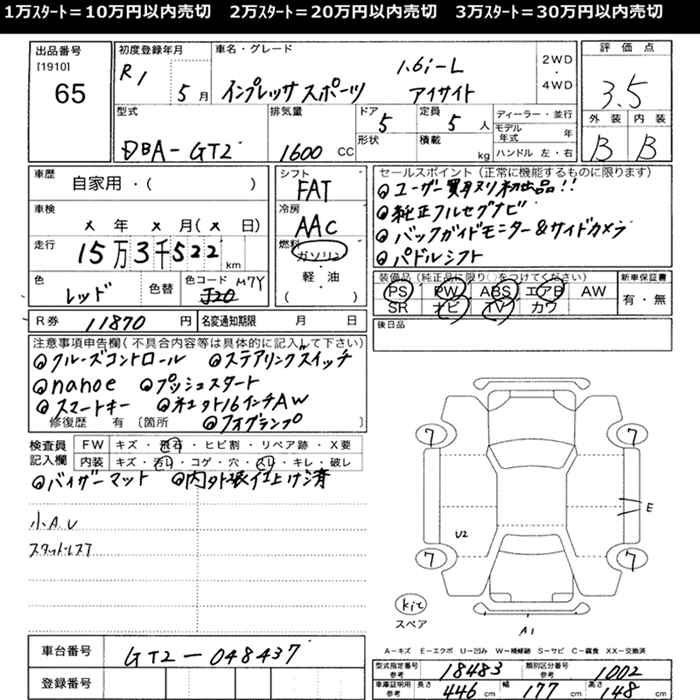 1万スタート＝10万円以内売切　2万スタート＝20万円以内売切　3万スタート＝30万円以内売切
出品番号 [1910] 65
初度登録年月 R1 5月
車名・グレード インプレッサスポーツ 1.6i-L アイサイト
2WD・4WD
評価点 3.5
外装 B 内装 B
型式 DBA-GT2
排気量 1600 CC
ドア 5 形状
定員 5人 積載 kg
ディーラー・並行
モデル年式 年
ハンドル 左・右
車歴 自家用・( )
車検 x 年 x 月( x 日)
走行 15万3千522 km
色 レッド 色替
色コード M7Y
R券 11870 円 名変通知期限 月 日
シフト FAT
冷房 AAC
燃料 ガソリン
軽・油
( )
セールスポイント(正常に機能するものに限ります)
ユーザー買取り初出品!!
純正フルセグナビ
バックガイドモニター&サイドカメラ
パドルシフト
装備品(純正品に限り○をつけてください)
PS PW ABS エアB AW
SR ナビ TV カワ
新車保証書 有・無
後日品
注意事項申告欄(不具合内容等は具体的に記入して下さい)
クルーズコントロール ステアリングスイッチ
nanoe プッシュスタート
スマートキー 16インチAW
修復歴 有 〔箇所 フォグランプ
検査員記入欄
FW キズ・飛石・ヒビ割・リペア跡・X要
内装 キズ・汚れ・コゲ・穴・スレ・キレ・破レ
バイザーマット 内外装仕上げ済
小A.U
スタッドレス7
7 7
E
U2
7 7
kit
スペア
A1
A－キズ E－エクボ U－凹み W－補修跡 S－サビ C－腐食 XX－交換済
車台番号 GT2-048437
登録番号
型式指定番号 参考 18483 類別区分番号 参考 1002
車庫証明用 参考 長さ 446 cm 幅 177 cm 高さ 148 cm